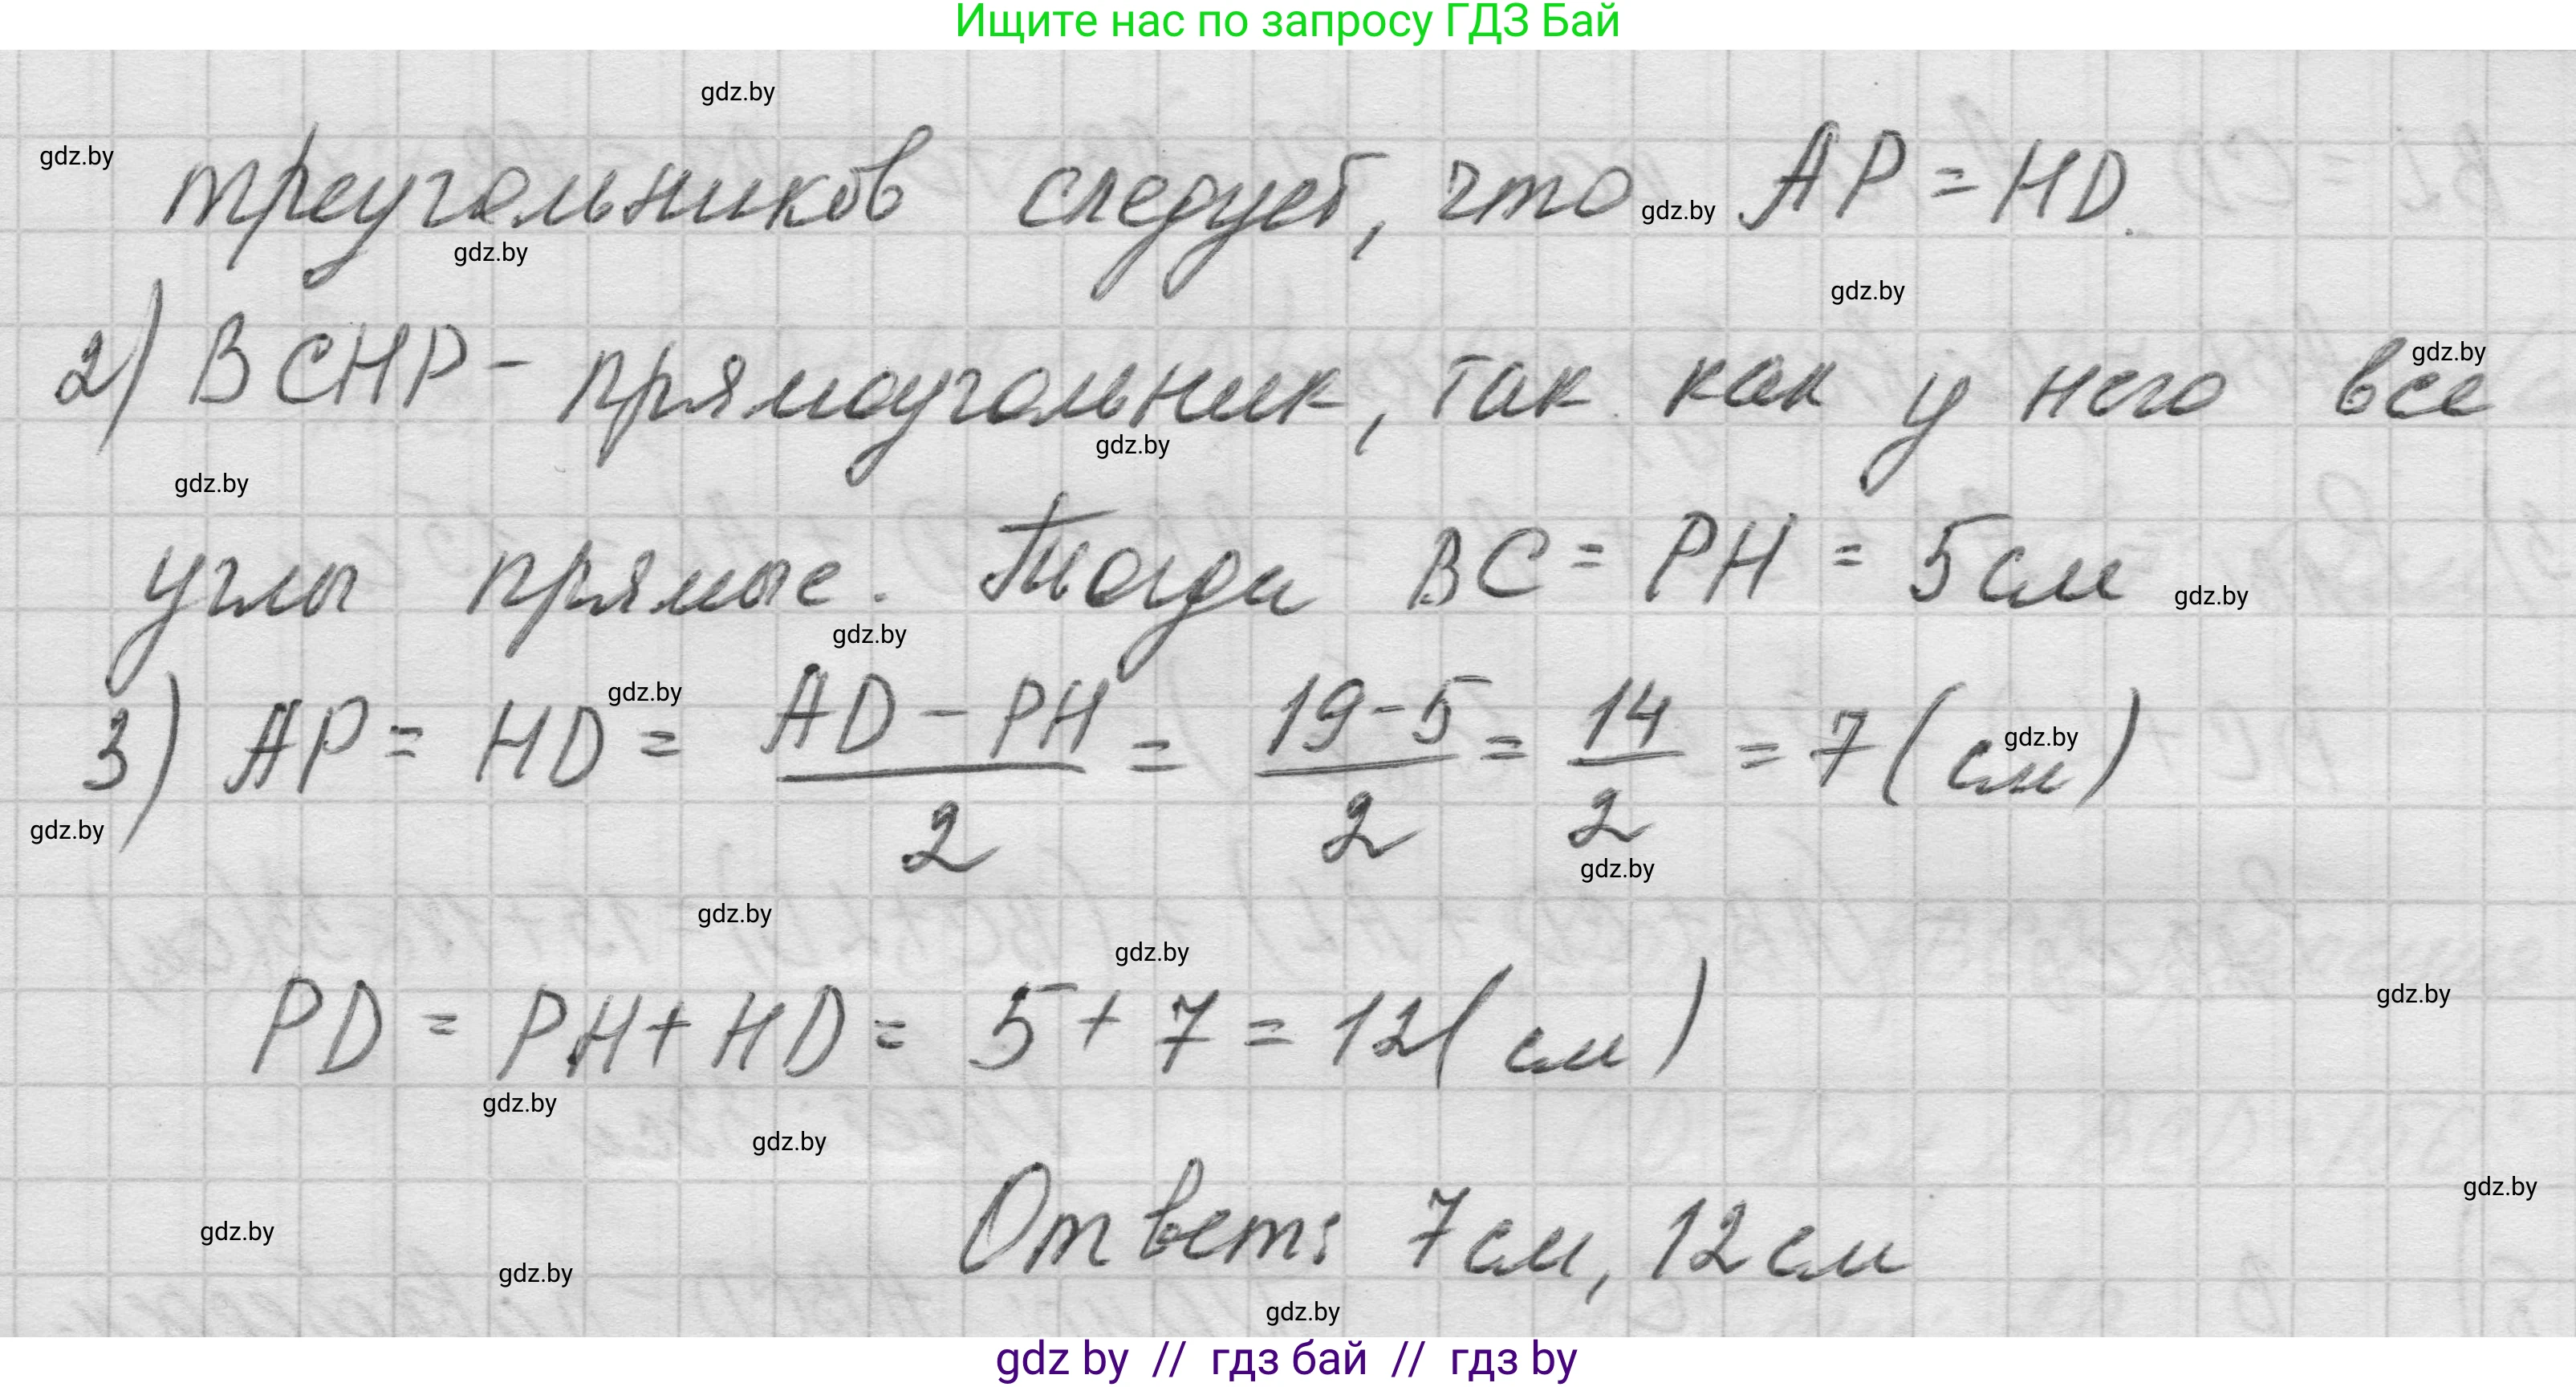 Ищите нас по запросу ГДЗ Бай
gdz.by
gdz.by
треугольников следует, что AP = HD.
gdz.by
gdz.by
gdz.by
2) BCHP - прямоугольник, так как у него все
gdz.by
gdz.by
gdz.by
углы прямые. Тогда BC = PH = 5 см
gdz.by
gdz.by
gdz.by
3) AP = HD = (AD - PH)/2 = (19-5)/2 = 14/2 = 7 (см)
gdz.by
gdz.by
gdz.by
gdz.by
gdz.by
gdz.by
PD = PH + HD = 5 + 7 = 12 (см)
gdz.by
gdz.by
gdz.by
Ответ: 7 см, 12 см
gdz.by
gdz.by
gdz.by
gdz by // гдз бай // гдз by